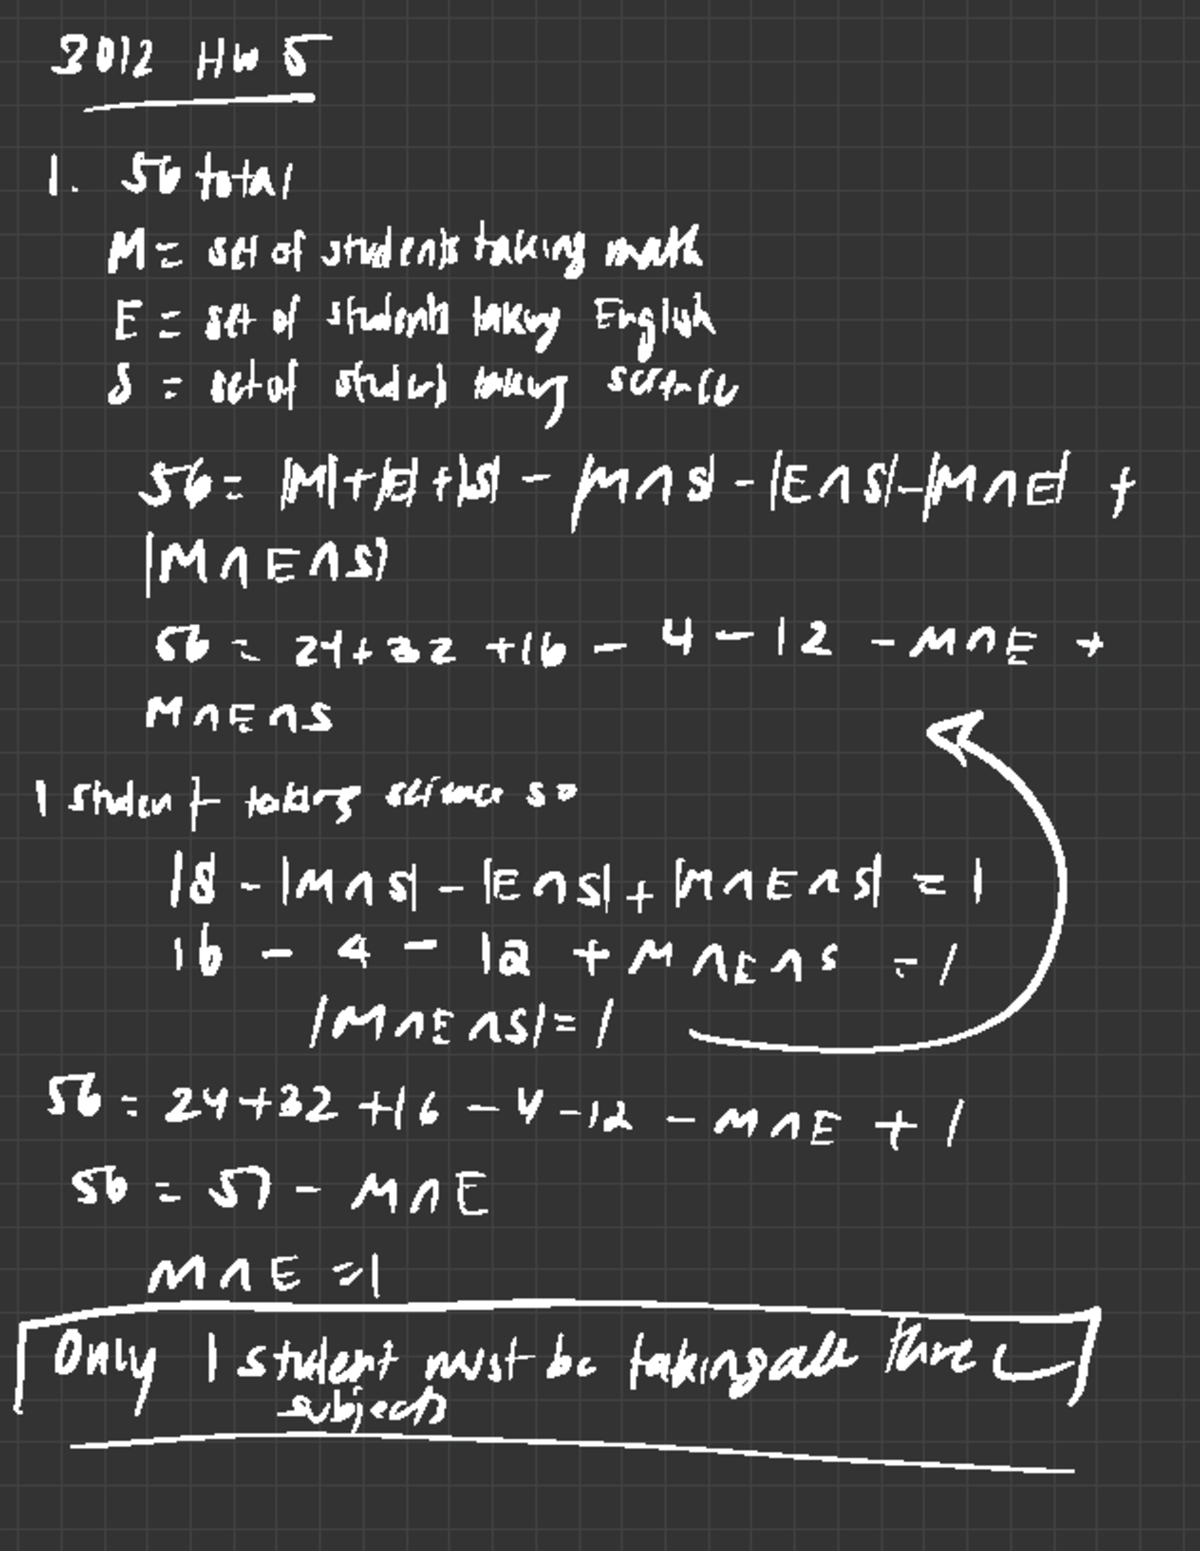 3012 HW 5
1. 56 total
M = set of students taking math
E = set of students taking English
S = set of students taking science
56 = |M|+|E|+|S| - |M∩S| - |E∩S| - |M∩E| +
|M∩E∩S|
56 = 24+32 +16 - 4 - 12 - M∩E +
M∩E∩S
1 student taking science so
18 - |M∩S| - |E∩S| + |M∩E∩S| = 1
16 - 4 - 12 + M∩E∩S = 1
|M∩E∩S| = 1
56 = 24+32 +16 - 4 - 12 - M∩E + 1
56 = 57 - M∩E
M∩E = 1
Only 1 student must be taking all three
subjects